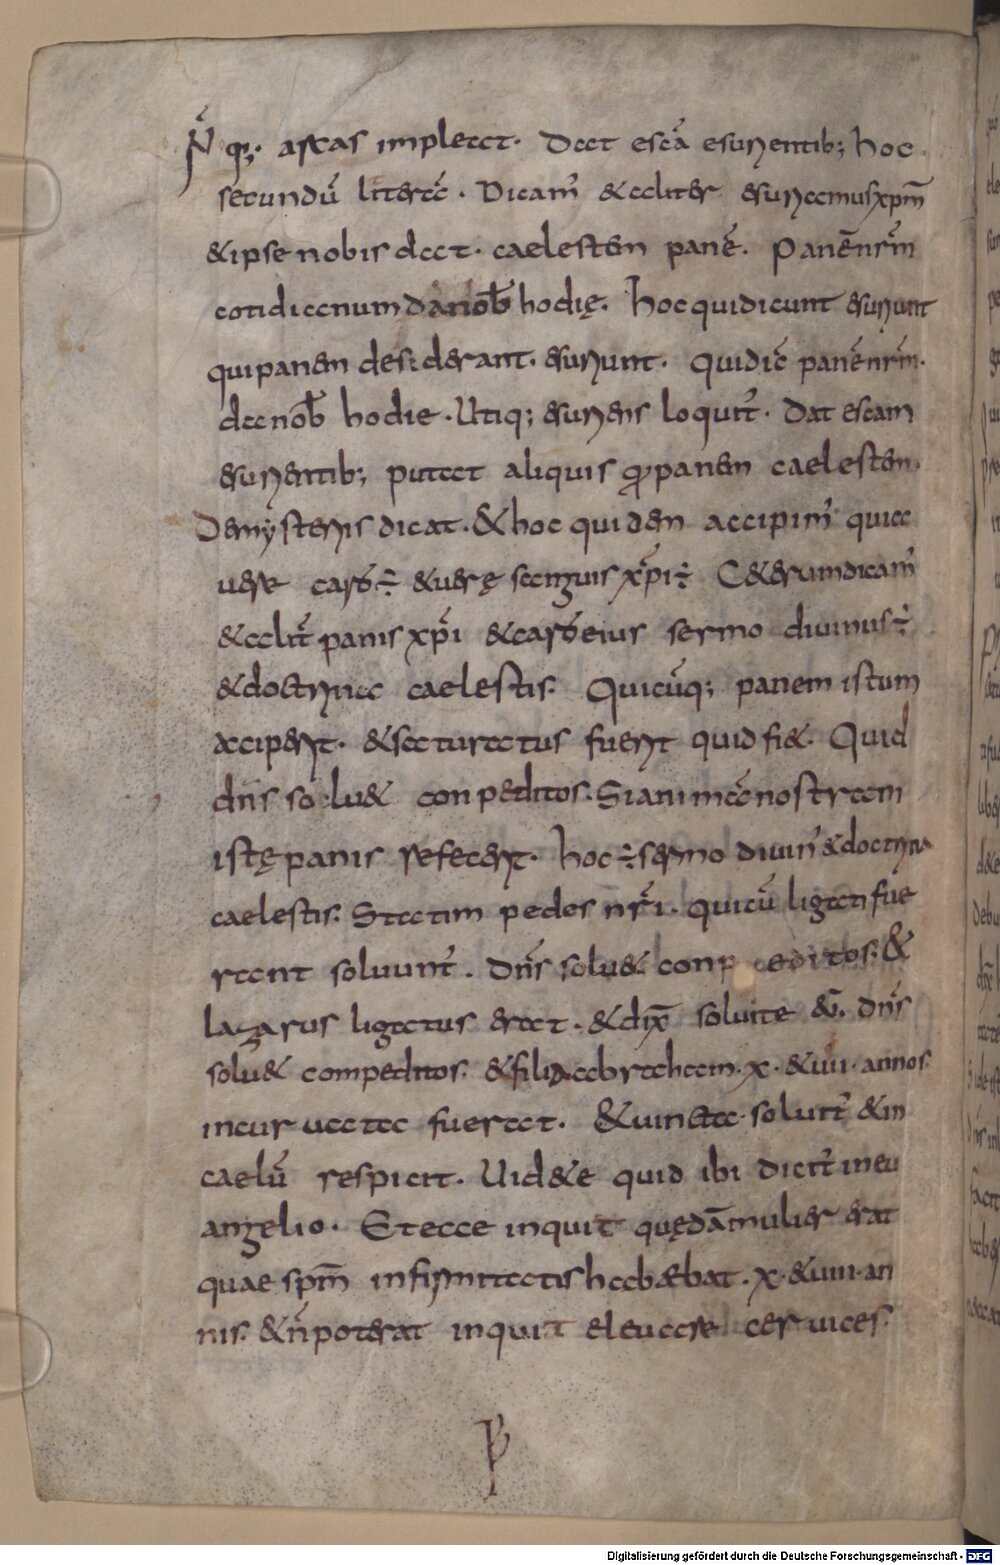 N̄ q;· arcas implect. Dat escā esurientib; hoc
secundū literā. Dicam᷒ & aliter esuriamus xp̄m
& ipse nobis dat. caelestem panē. Panē nr̄m
cotidianum da nob̄ hodię. Hoc qui dicunt esuriunt
qui panem desiderant. esuriunt. Qui dic̄ panē nr̄m.
da nob̄ hodie. Utiq; esuriens loquit᷒. Dat escam
esurientib; putat aliquis ꝓ panem caelestem.
De mysteriis dicat. & hoc quidem accipim᷒ quia
uere caro ÷ & uerę sanguis xp̄i ÷ Ceterum dicam᷒
& alit̄ panis xp̄i & caro eius sermo diuinus ÷
& doctrina caelestis. Quicūq; panem istum
acciperit. & saturatus fuerit quid fi&. Quid
dn̄s solu& conpeditos. Si animā nostram
istę panis refecerit. hoc ÷ sermo diuin᷒ & doctrina
caelestis. Statim pedes nr̄i. qui cū ligati fue
rant soluunt᷒. Dn̄s solu& conpeditos. &
lazarus ligatus erat. & dix̄ soluite eū. dn̄s
solu& compeditos. & filia abraham. x. & uiii. annos
incuruata fuerat. & uincta soluit᷒ & in
caelū respicit. Uid&e quid ibi dicit᷒ in eu
angelio. Et ecce inquit quędā mulier erat
quae sp̄m infirmitatis habaebat. x. & uiii. an
nis. & n̄ poterat inquit eleuare ceruices.
Digitalisierung gefördert durch die Deutsche Forschungsgemeinschaft - DFG